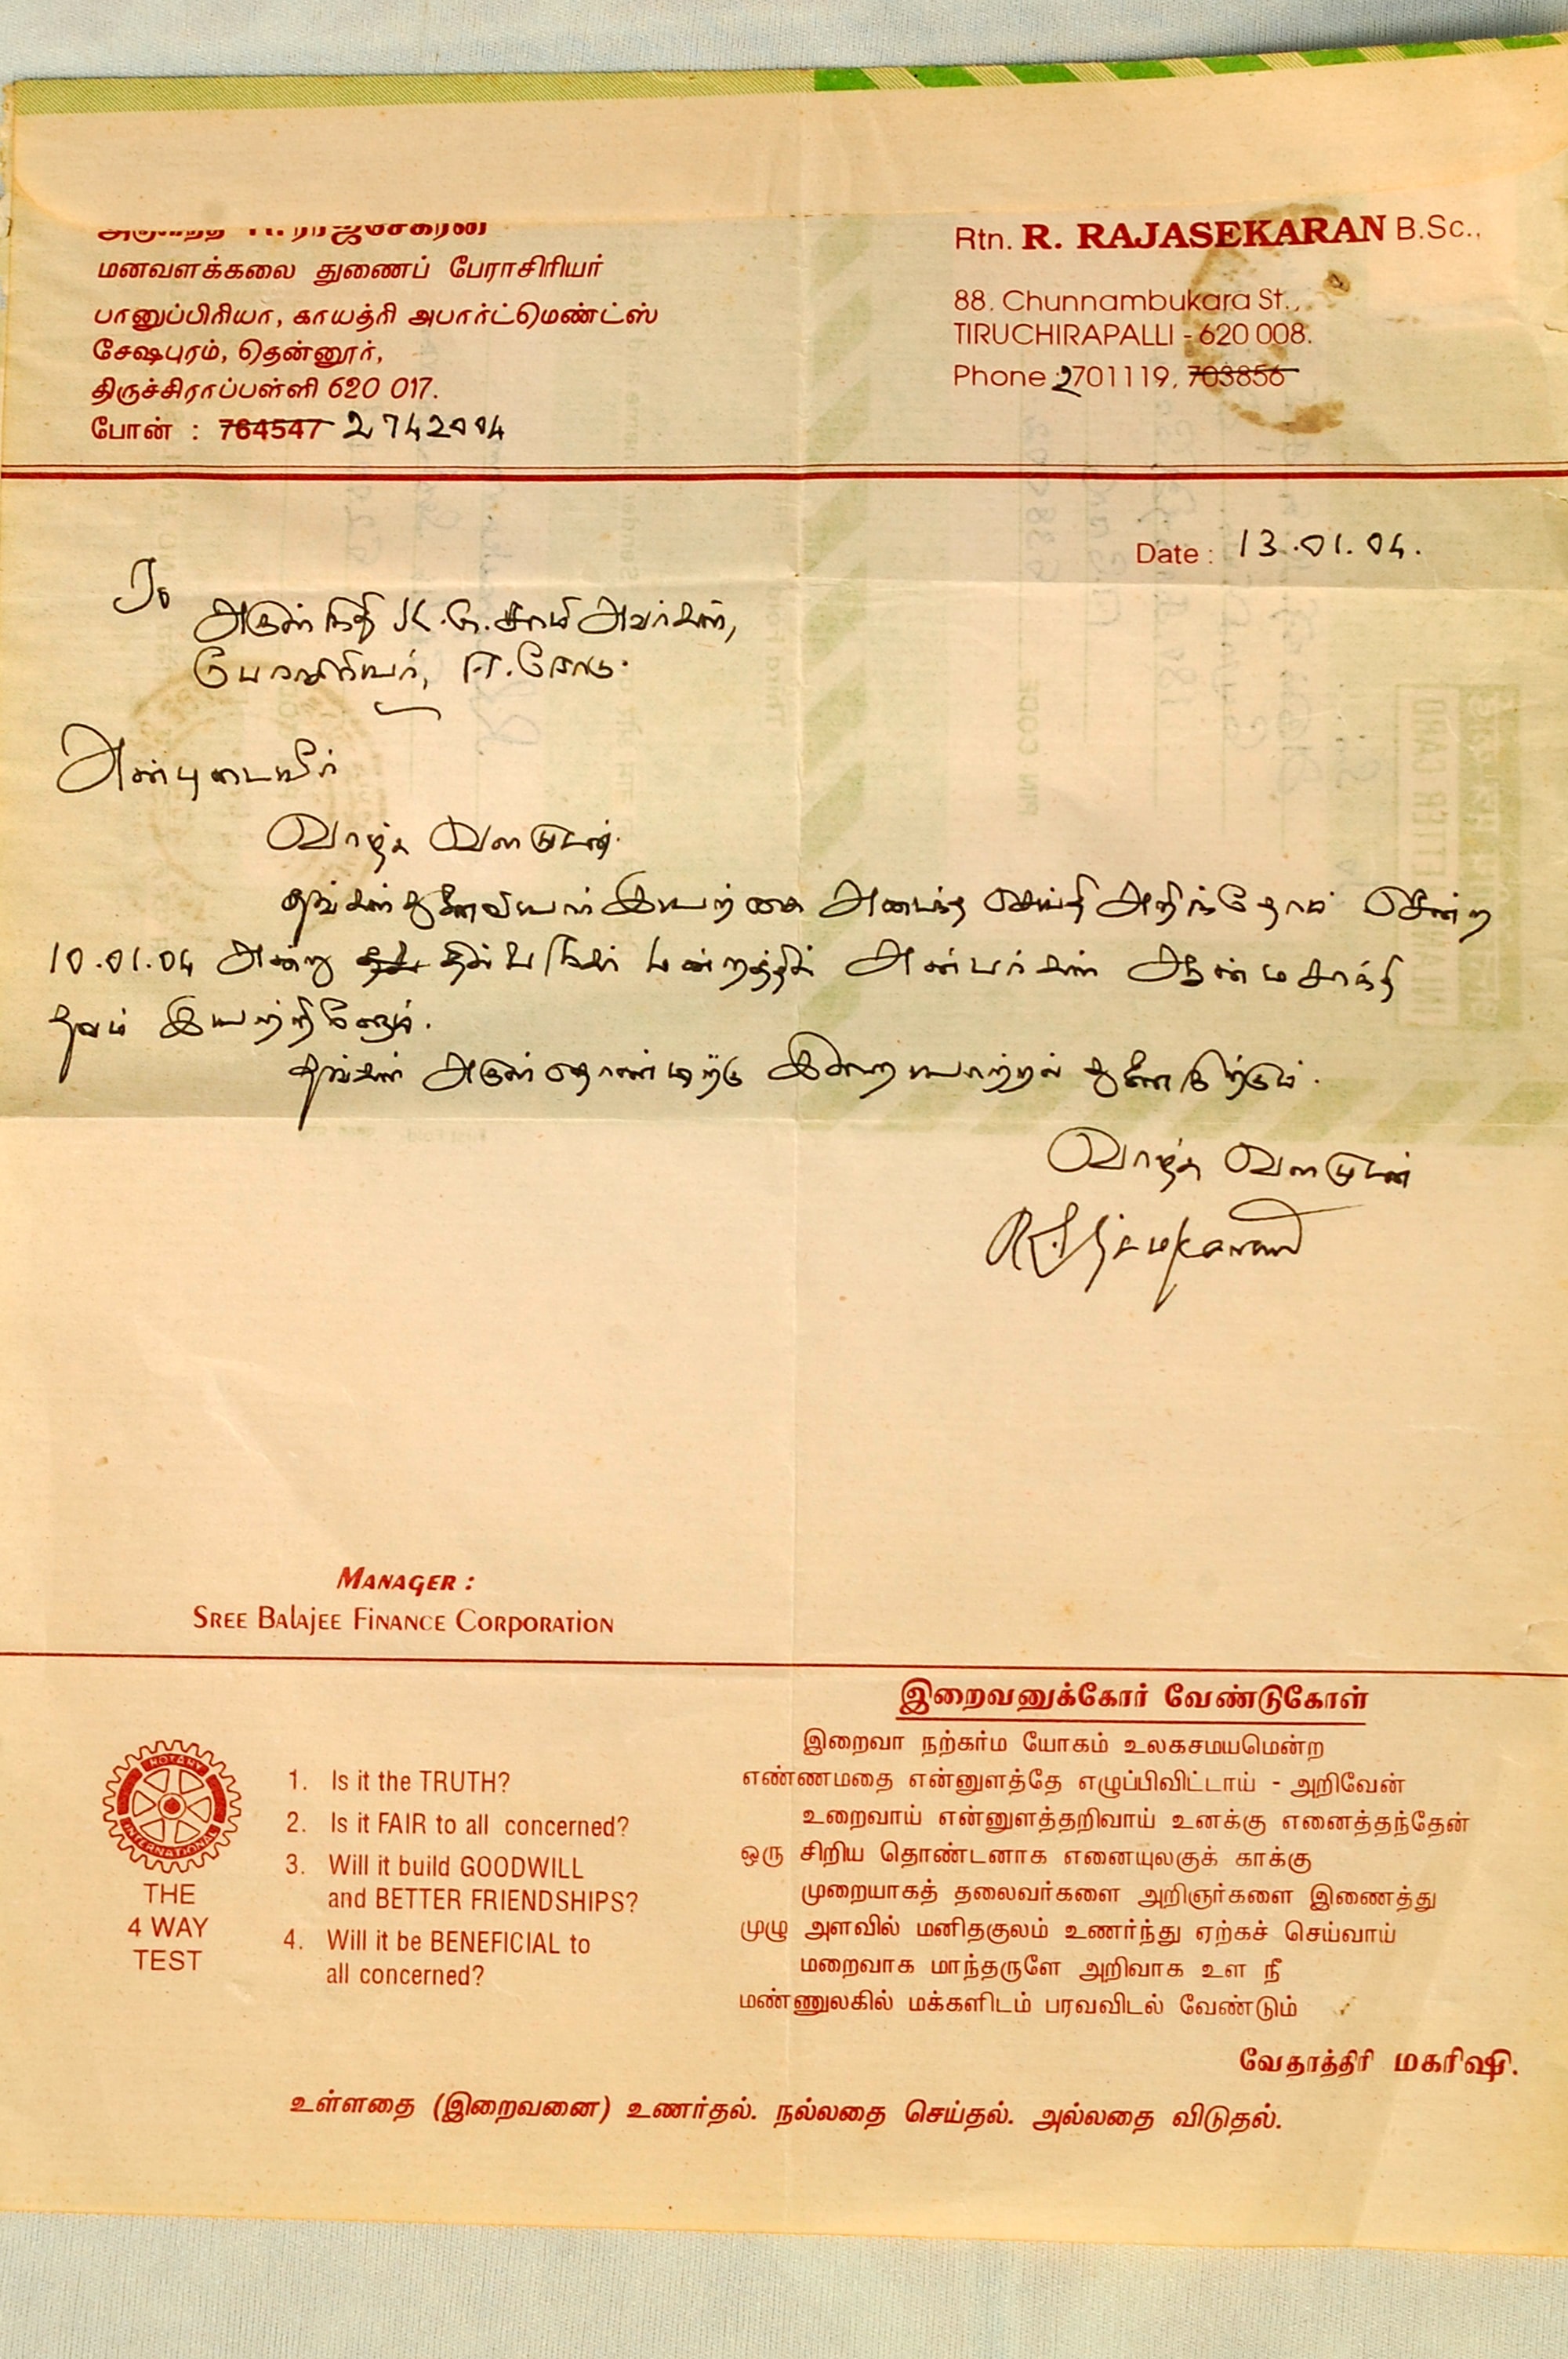 மனவளக்கலை துணைப் பேராசிரியர்
பானுப்பிரியா, காயத்ரி அபார்ட்மெண்ட்ஸ்
சேஷபுரம், தென்னூர்,
திருச்சிராப்பள்ளி 620 017.
போன் : 764547 2742004
Rtn. R. RAJASEKARAN B.Sc.,
88, Chunnambukara St.,
TIRUCHIRAPALLI - 620 008.
Phone : 2701119, 703856
Date : 13.01.04.
To
அருள்நிதி K.G. சாமி அவர்கள்,
பேராசிரியர், ஈரோடு.
அன்புடையீர்
வாழ்க வளமுடன்.
தங்கள் துணைவியார் இயற்கை அடைந்த செய்தி அறிந்தோம் சென்ற
10.01.04 அன்று தில்லைநகர் மன்றத்தில் அன்பர்கள் ஆன்மசாந்தி
தவம் இயற்றினோம்.
தங்கள் அருள்தொண்டிற்கு இறையாற்றல் துணைநிற்கும்.
வாழ்க வளமுடன்
MANAGER :
SREE BALAJEE FINANCE CORPORATION
ROTARY
INTERNATIONAL
THE
4 WAY
TEST
1. Is it the TRUTH?
2. Is it FAIR to all concerned?
3. Will it build GOODWILL
and BETTER FRIENDSHIPS?
4. Will it be BENEFICIAL to
all concerned?
இறைவனுக்கோர் வேண்டுகோள்
இறைவா நற்கர்ம யோகம் உலகசமயமென்ற
எண்ணமதை என்னுளத்தே எழுப்பிவிட்டாய் - அறிவேன்
உறைவாய் என்னுளத்தறிவாய் உனக்கு எனைத்தந்தேன்
ஒரு சிறிய தொண்டனாக எனையுலகுக் காக்கு
முறையாகத் தலைவர்களை அறிஞர்களை இணைத்து
முழு அளவில் மனிதகுலம் உணர்ந்து ஏற்கச் செய்வாய்
மறைவாக மாந்தருளே அறிவாக உள நீ
மண்ணுலகில் மக்களிடம் பரவவிடல் வேண்டும்
வேதாத்திரி மகரிஷி.
உள்ளதை (இறைவனை) உணர்தல். நல்லதை செய்தல். அல்லதை விடுதல்.